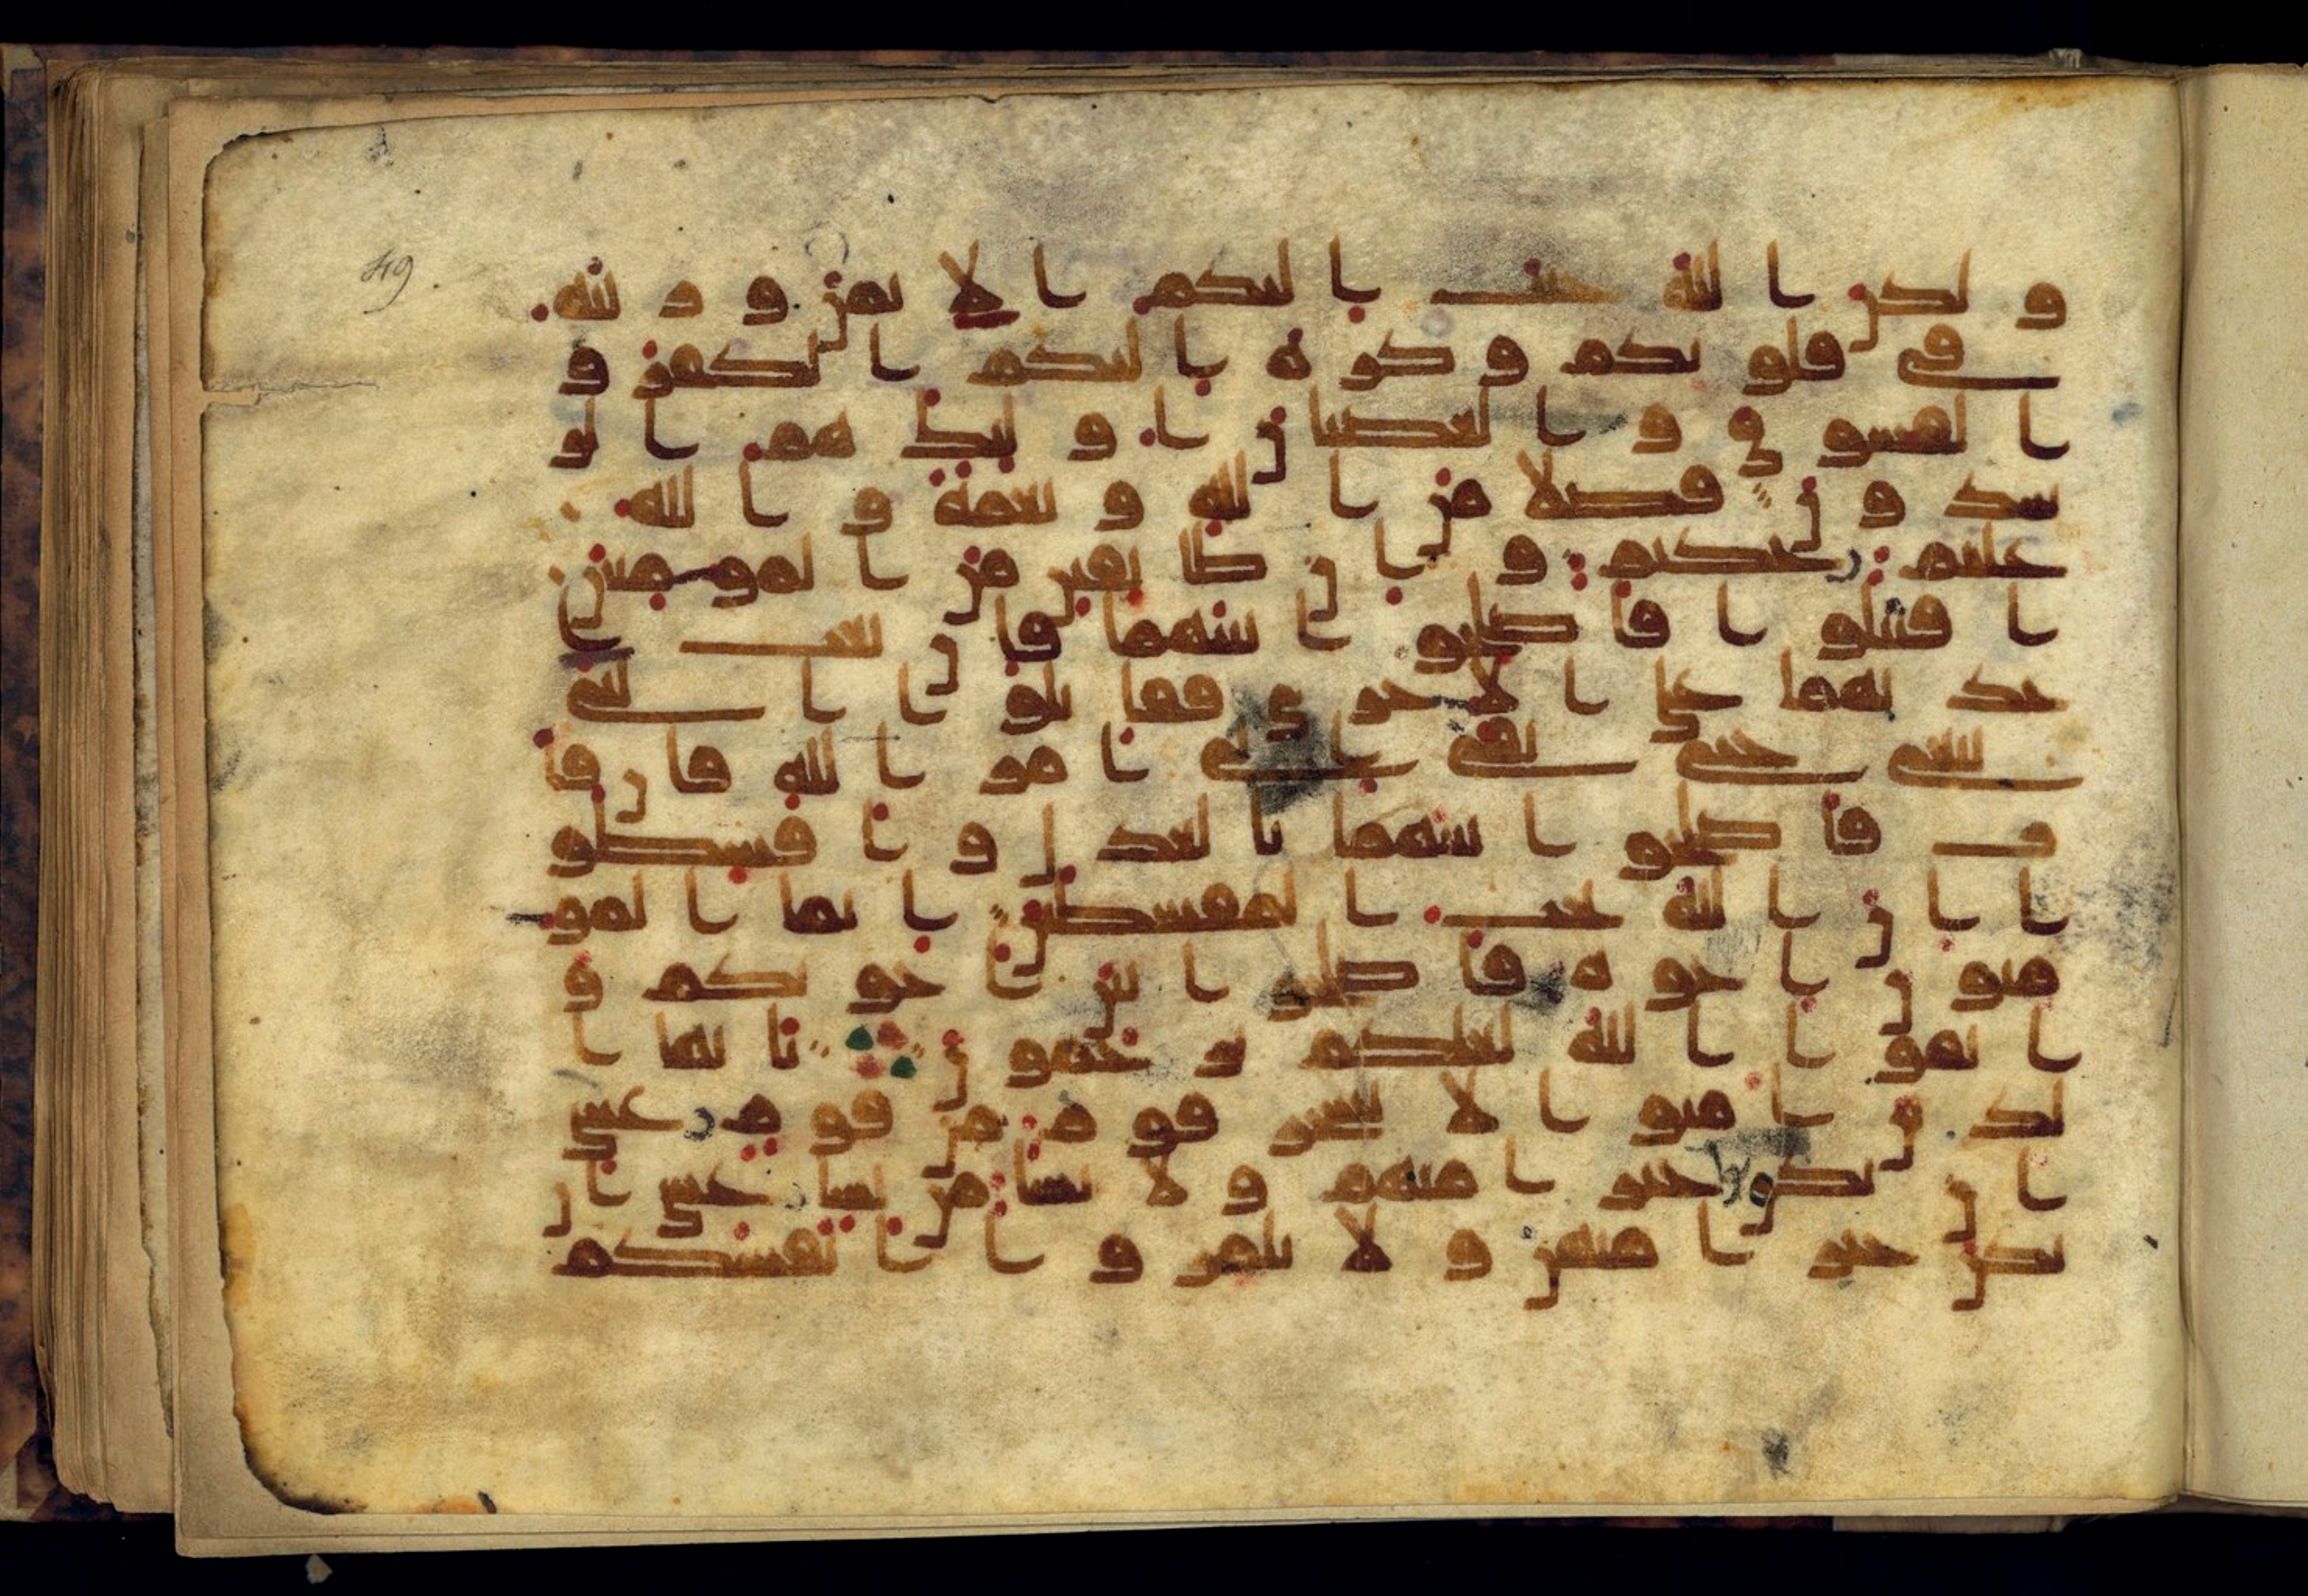 49.
و لكن ا لله حبب ا ليكم ا لا يمن و ز ينه
في قلو بكم و كر ه ا ليكم ا لكفر و
ا لفسو ق و ا لعصيا ن ا و لئك هم ا لر
شد و ن فضلا من ا لله و نعمة و ا لله
عليم حكيم و ا ن طا ئفتن من ا لمو منين
ا قتتلو ا فا صلحو ا بينهما فا ن بغت ا
حد يهما على ا لا خر ى فقا تلو ا ا لتي
تبغي حتى تفي ا لى ا مر ا لله فا ن فا
ت فا صلحو ا بينهما با لعد ل و ا قسطو
ا ا ن ا لله يحب ا لمقسطين ا نما ا لمو
منو ن ا خو ه فا صلحو ا بين ا خو يكم و
ا تقو ا ا لله لعلكم تر حمو ن يا يها ا
لذ ين ا منو ا لا يسخر قو م من قو م عسى
ا ن يكونوا خير ا منهم و لا نسا من نسا عسى ا ن
يكن خير ا منهن و لا تلمز و ا ا نفسكم